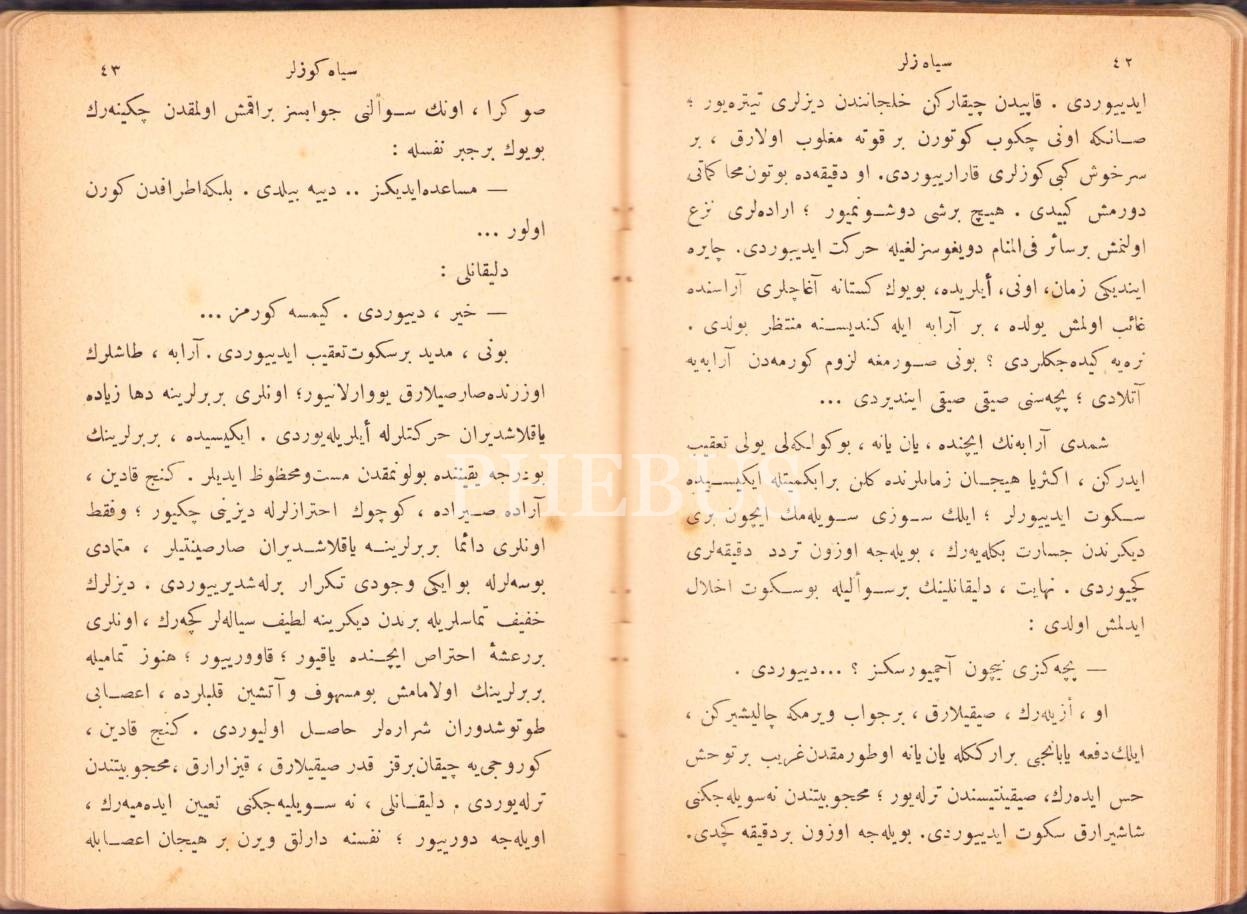 ٤٢
سیاه زلر
ایدییوردی . قاپیدن چیقارکن خلجانندن دیزلری تیتره‌یور ؛
صانکه اونی چکوب کوتورن بر قوته مغلوب اولارق ، بر
سرخوش کبی کوزلری قارارییوردی. او دقیقه‌ده بوتون محاکماتی
دورمش کبیدی . هیچ برشی دوشونمیور ؛ اراده‌لری نزع
اولنمش برسائر فی‌المنام دویغوسزلغیله حرکت ایدییوردی. چایره
ایندیکی زمان، اونی، أیلریده، بویوك کستانه آغاچلری آراسنده
غائب اولمش یولده ، بر آرابه ایله کندیسنه منتظر بولدی .
نره‌یه کیده‌جکلردی ؟ بونی صورمغه لزوم کورمه‌دن آرابه‌یه
آتلادی ؛ پچه‌سنی صیقی صیقی ایندیردی ...
شمدی آرابه‌نك ایچنده ، یان یانه ، بوکولکه‌لی یولی تعقیب
ایدرکن ، اکثریا هیجان زمانلرنده کلن برابکمیتله ایکیسیده
سکوت ایدییورلر ؛ ایلك سوزی سویله‌مك ایچون بری
دیکرندن جسارت بکله‌یه‌رك ، بویله‌جه اوزون تردد دقیقه‌لری
کچیوردی . نهایت ، دلیقانلینك برسؤالیله بوسکوت اخلال
ایدلمش اولدی :
— پچه‌کزی نیچون آچمیورسکز ؟ ... دییوردی .
او ، أزیله‌رك ، صیقیلارق ، برجواب ویرمکه چالیشیرکن ،
ایلك‌دفعه یابانجی برارککله یان‌یانه اوطورمقدن غریب برتوحش
حس ایده‌رك، صیقینتیسندن ترله‌یور ؛ محجوبیتندن نه‌سویله‌جکنی
شاشیرارق سکوت ایدییوردی. بویله‌جه اوزون بردقیقه کچدی.
سیاه کوزلر
٤٣
صوکرا ، اونك سؤالنی جوابسز براقمش اولمقدن چکینه‌رك
بویوك برجبر نفسله :
— مساعده‌ایدیکز .. دییه بیلدی . بلکه‌اطرافدن کورن
اولور ...
دلیقانلی :
— خیر ، دییوردی . کیمسه کورمز ...
بونی ، مدید برسکوت‌تعقیب ایدییوردی . آرابه ، طاشلرك
اوزرنده‌صارصیلارق یووارلانیور؛ اونلری بربرلرینه دها زیاده
یاقلاشدیران حرکتلرله أیلریله‌یوردی . ایکیسیده ، بربرلرینك
بودرجه یقیننده بولونمقدن مست‌ومحظوظ ایدیلر . کنج قادین ،
آراده صیراده ، کوچوك احترازلرله دیزینی چکیور ؛ وفقط
اونلری دائما بربرلرینه یاقلاشدیران صارصینتیلر ، متمادی
بوسه‌لرله بوایکی وجودی تکرار برله‌شدیرییوردی . دیزلرك
خفیف تماسلریله برندن دیکرینه لطیف سیاله‌لر کچه‌رك ، اونلری
بررعشهٔ احتراص ایچنده یاقیور ؛ قاوورییور ؛ هنوز تمامیله
بربرلرینك اولامامش بومسهوف و آتشین قلبلرده ، اعصابی
طوتوشدوران شراره‌لر حاصل اولیوردی . کنج قادین ،
کوروجی‌یه چیقان‌برقز قدر صیقیلارق ، قیزارارق ،محجوبیتندن
ترله‌یوردی . دلیقانلی ، نه سویلیه‌جکنی تعیین ایده‌میه‌رك ،
اویله‌جه دورییور ؛ نفسنه دارلق ویرن بر هیجان اعصابله
PHEBUS